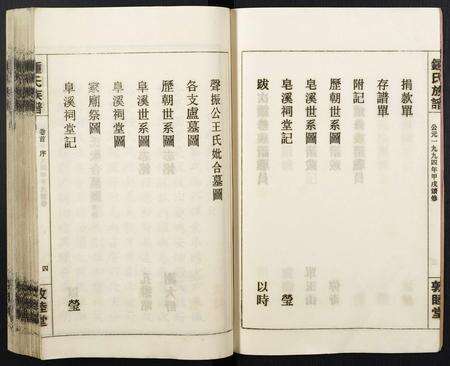 鍾氏族譜
公元一九九四年甲戌續修
敦睦堂
捐款單
存譜單
附記
歷朝世系圖
皂溪世系圖
皂溪祠堂記 瑩
跋 以時
聲振公王氏妣合墓圖
各支廬墓圖
歷朝世系圖
皂溪世系圖
皂溪祠堂圖
家廟祭圖
皂溪祠堂記 瑩
鍾氏族譜
卷首 序
四
敦睦堂